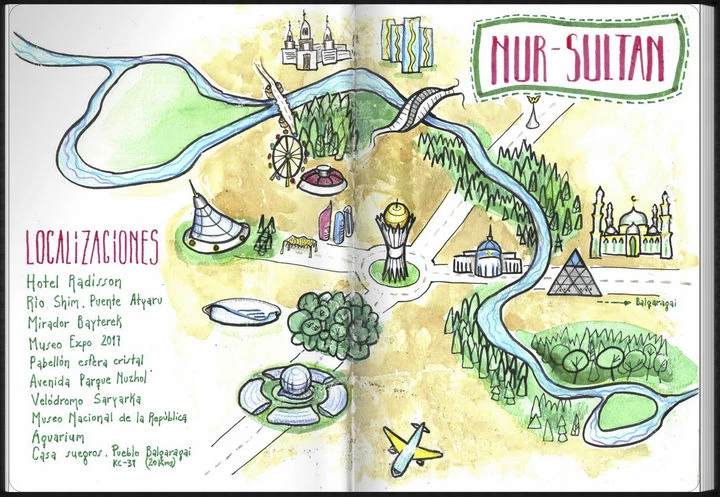 NUR-SULTAN
LOCALIZACIONES
Hotel Radisson
Rio Shim. Puente Atyaru
Mirador Bayterek
Museo Expo 2017
Pabellón esfera cristal
Avenida Parque Nuzhol
Velódromo Saryarka
Museo Nacional de la República
Aquarium
Casa suegros. Pueblo Balgaragai
KC-37 (20Kms)
Balgaragai